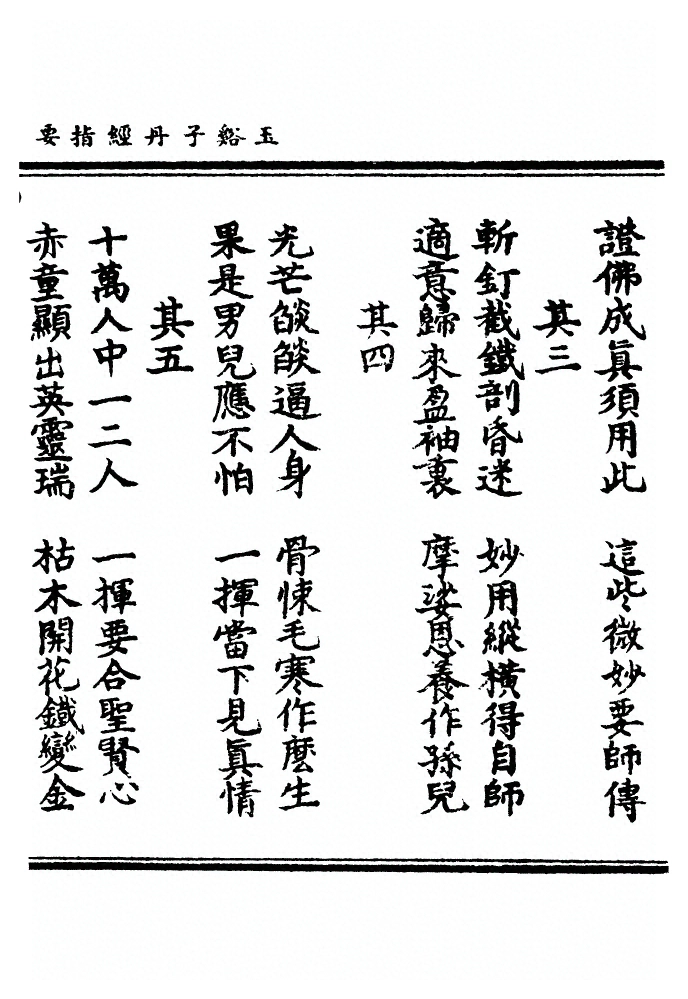 玉谿子丹經指要
證佛成眞須用此 這些微妙要師傳
其三
斬釘截鐵剖昏迷 妙用縱橫得自師
適意歸來盈袖裏 摩挲恩養作孫兒
其四
光芒燄燄逼人身 骨悚毛寒作麽生
果是男兒應不怕 一揮當下見眞情
其五
十萬人中一二人 一揮要合聖賢心
赤童顯出英靈瑞 枯木開花鐵變金